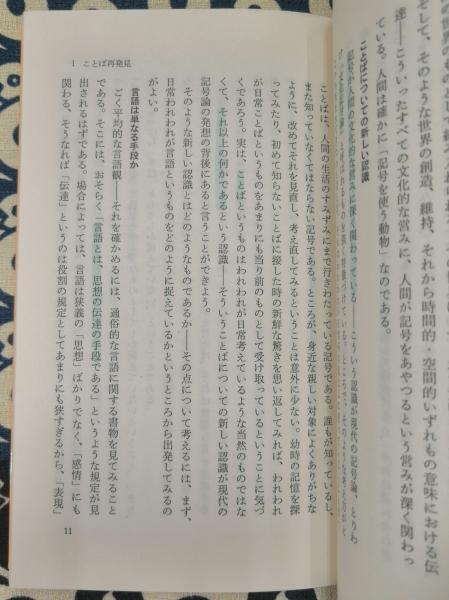 そして、そのような世界の創造、維持、それから時間的・空間的いずれもの意味における伝
達――こういったすべての文化的な営みに、人間が記号をあやつるという営みが深く関わっ
ている。人間は確かに「記号を使う動物」なのである。
ことばについての新しい認識
記号が人間の文化的な営みに深く関わっている――こういう認識が現代の記号論、とりわ
ことばは、人間の生活のすみずみにまで行きわたっている記号である。誰もが知っているし、
また知っていなくてはならない記号である。ところが、身近な親しい対象によくありがちな
ように、改めてそれを見直し、考え直してみるということは意外に少ない。幼時の記憶を探
ってみたり、初めて知らないことばに接した時の新鮮な驚きを思い返してみれば、われわれ
が日常ことばというものをあまりにも当り前のものとして受け取っているということに気づ
くであろう。実は、ことばというものはわれわれが日常考えているような当然のものではな
くて、それ以上の何かであるという認識――そういうことばについての新しい認識が現代の
記号論の発想の背後にあると言うことができよう。
そのような新しい認識とはどのようなものであるか――その点について考えるには、まず、
日常われわれが言語というものをどのように捉えているかというところから出発してみるの
がよい。
言語は単なる手段か
ごく平均的な言語観――それを確かめるには、通俗的な言語に関する書物を見てみること
である。そこには、おそらく「言語とは、思想の伝達の手段である」というような規定が見
出されるはずである。場合によっては、言語は狭義の「思想」ばかりでなく、「感情」にも
関わる、そうなれば「伝達」というのは役割の規定としてあまりにも狭すぎるから、「表現」
1 ことば再発見
11